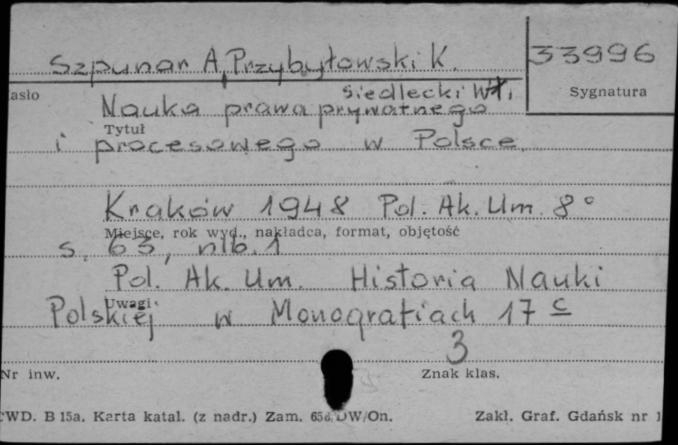 Szpunar A, Przybyłowski K.
33996
asło
Siedlecki Wł,
Sygnatura
Nauka prawa prywatnego
Tytuł
i procesowego w Polsce.
Kraków 1948 Pol. Ak. Um. 8°
Miejsce, rok wyd., nakładca, format, objętość
s. 63, nlb. 1
Pol. Ak. Um. Historia Nauki
Uwagi
Polskiej w Monografiach 17 c
3
Nr inw.
Znak klas.
CWD. B 15a. Karta katal. (z nadr.) Zam. DW/On.
Zakł. Graf. Gdańsk nr 1